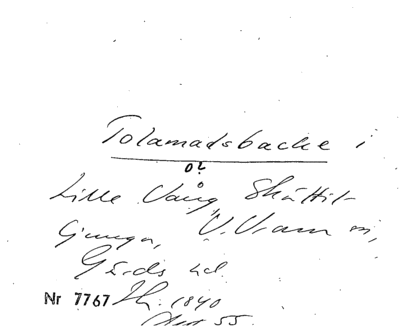 Tolamadsbacke i
o?
Lille Vång, Skättil-
ljunga, V. Vram sn,
Gärds hd.
Nr 7767 Sk. 1840